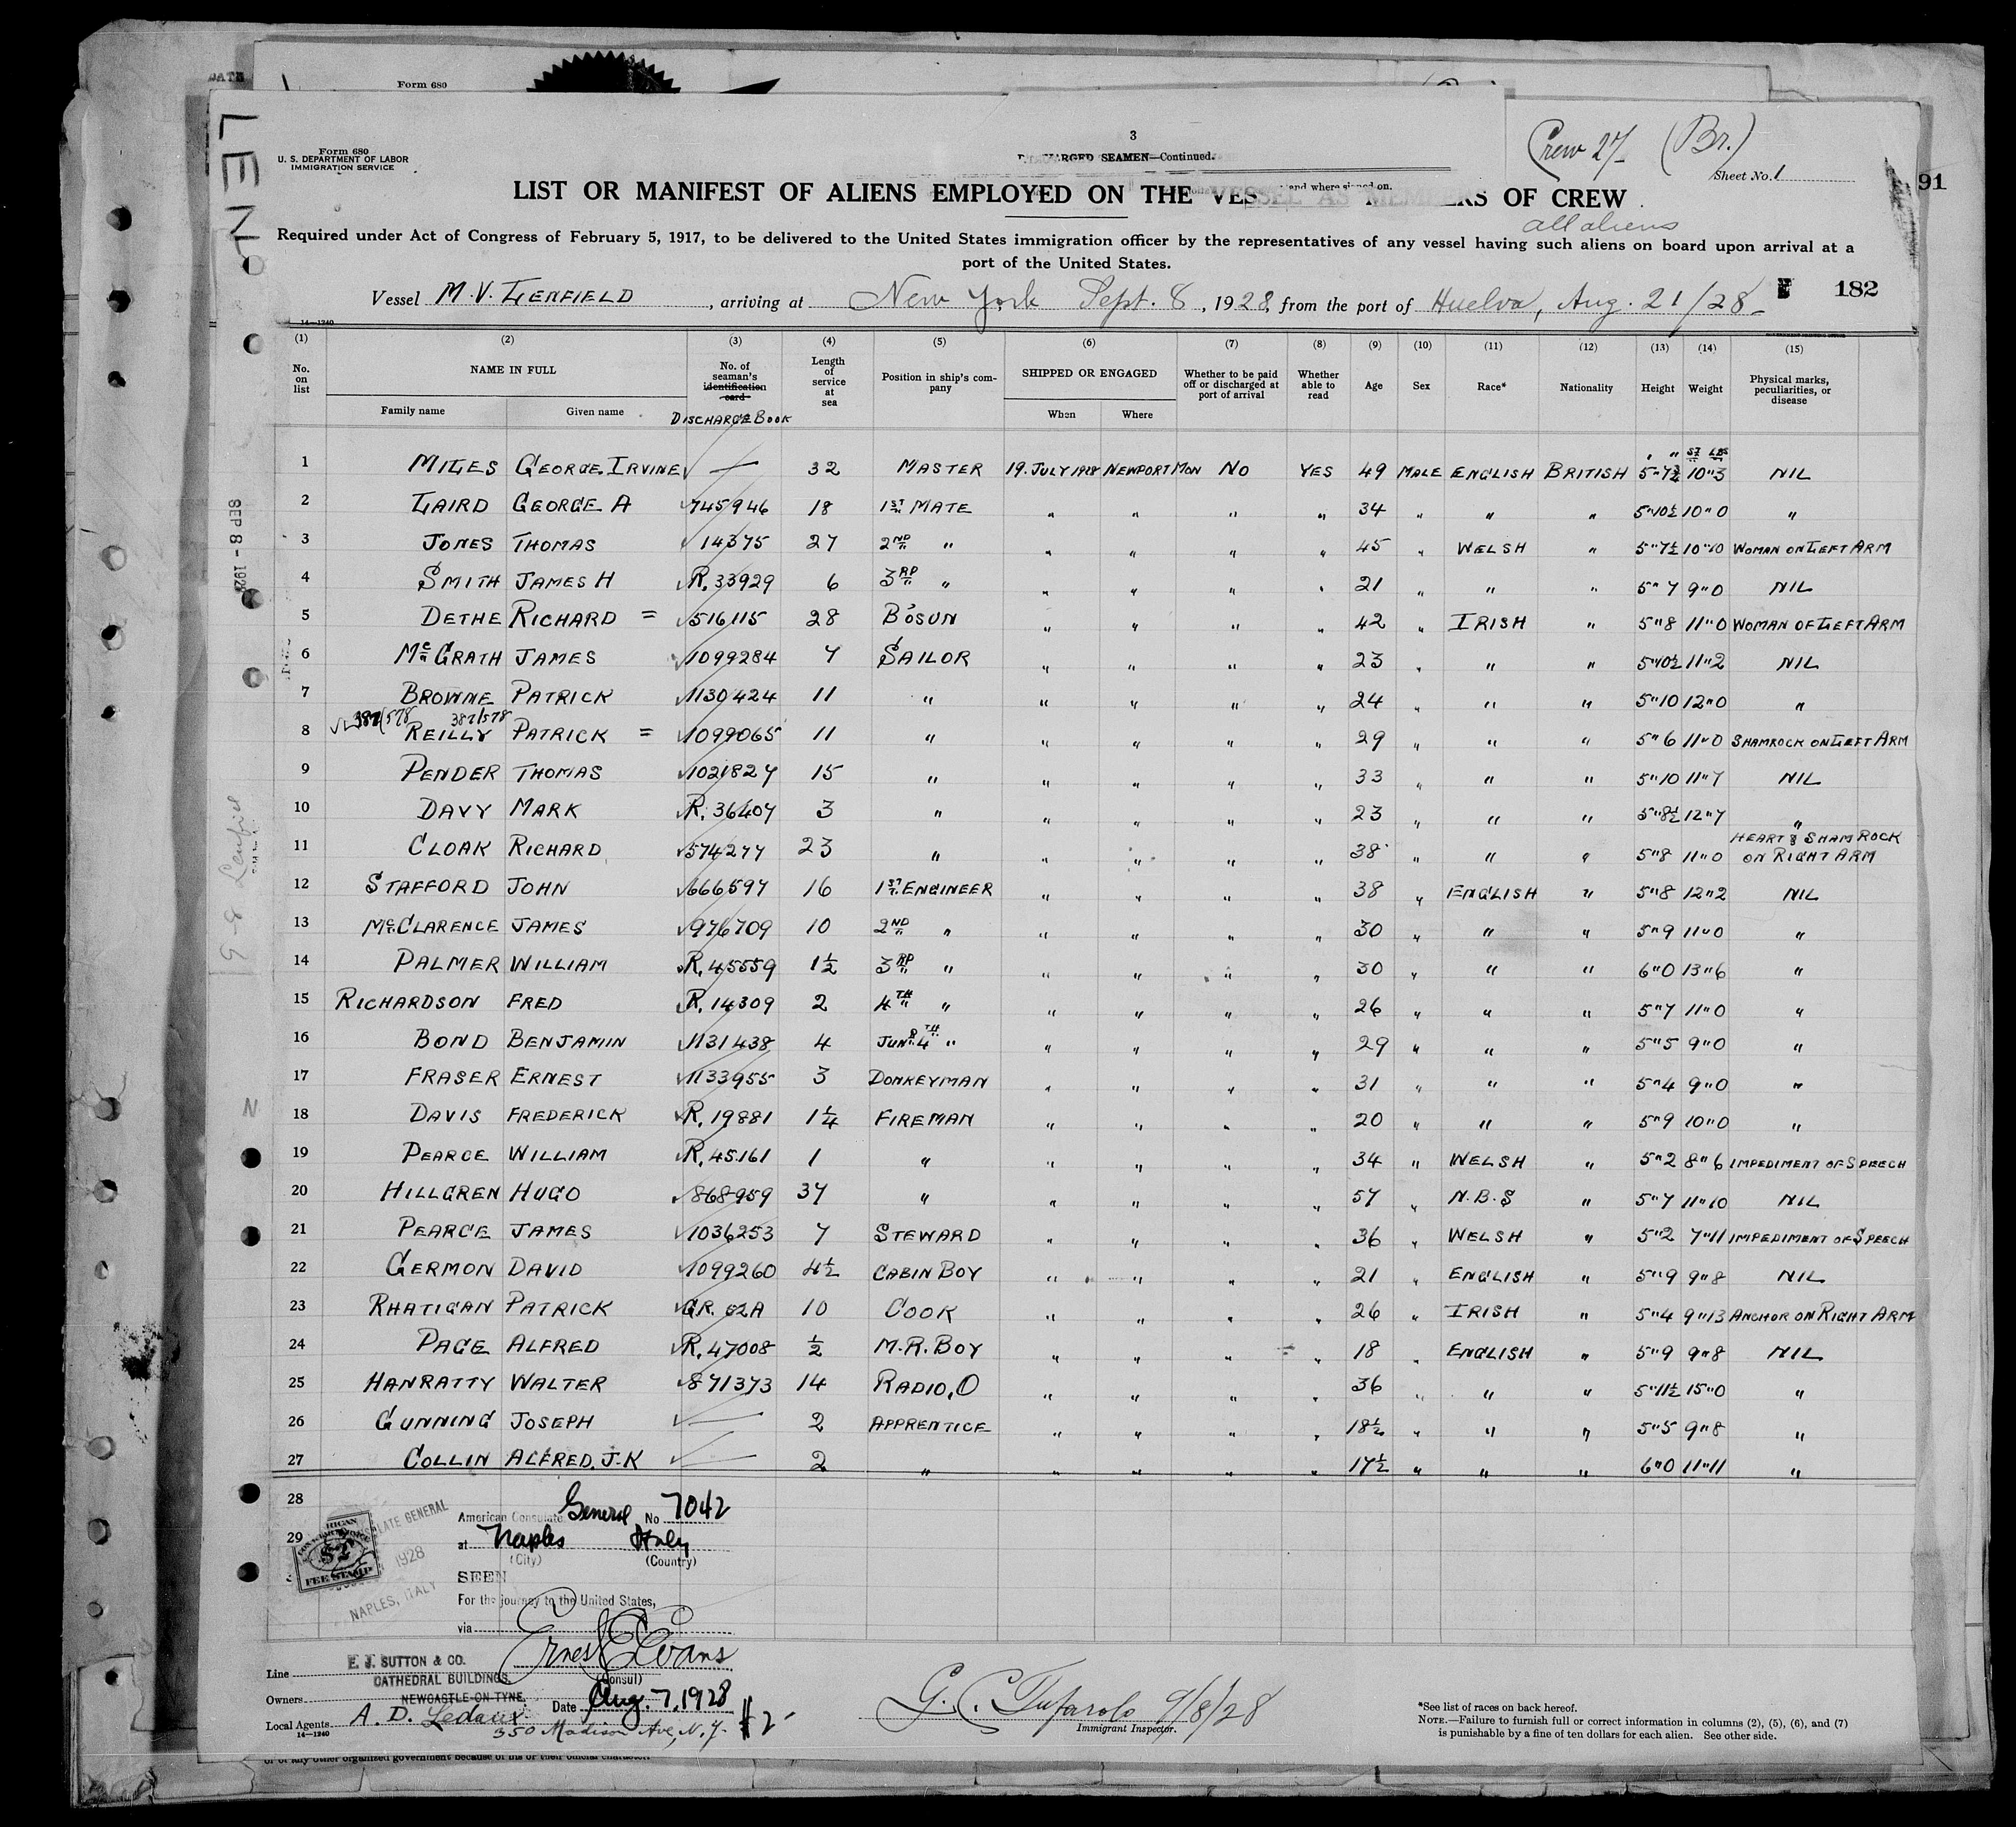 DATE
Form 680
LEN
Form 680
U. S. DEPARTMENT OF LABOR
IMMIGRATION SERVICE
3
SEAMEN—Continued.
and where signed on.
Crew 27 (Br.)
Sheet No. 1
91
LIST OR MANIFEST OF ALIENS EMPLOYED ON THE VESSEL AS MEMBERS OF CREW
all aliens
Required under Act of Congress of February 5, 1917, to be delivered to the United States immigration officer by the representatives of any vessel having such aliens on board upon arrival at a
port of the United States.
Vessel M.V. LENFIELD, arriving at New York Sept. 8, 1928, from the port of Huelva, Aug. 21/28
182
14—1240
(1) (2) (3) (4) (5) (6) (7) (8) (9) (10) (11) (12) (13) (14) (15)
No. on list | NAME IN FULL | No. of seaman's identification card | Length of service at sea | Position in ship's company | SHIPPED OR ENGAGED | Whether to be paid off or discharged at port of arrival | Whether able to read | Age | Sex | Race* | Nationality | Height | Weight | Physical marks, peculiarities, or disease
Family name | Given name | DISCHARGE BOOK | When | Where
' " ST LBS
1 MILES GEORGE IRVINE — 32 MASTER 19. JULY 1928 NEWPORT MON NO YES 49 MALE ENGLISH BRITISH 5"7¾ 10"3 NIL
2 LAIRD GEORGE A 745946 18 1ST MATE " " " " 34 " " " 5"10½ 10"0 "
3 JONES THOMAS 14375 27 2ND " " " " " 45 " WELSH " 5"7½ 10"10 WOMAN ON LEFT ARM
4 SMITH JAMES H R. 33929 6 3RD " " " " " 21 " " " 5"7 9"0 NIL
5 DETHE RICHARD = 516115 28 BOSUN " " " " 42 " IRISH " 5"8 11"0 WOMAN OF LEFT ARM
6 McGRATH JAMES 1099284 7 SAILOR " " " " 23 " " " 5"10½ 11"2 NIL
7 BROWNE PATRICK 1130424 11 " " " " " 24 " " " 5"10 12"0 "
387/578 387/578
8 REILLY PATRICK = 1099065 11 " " " " " 29 " " " 5"6 11"0 SHAMROCK ON LEFT ARM
9 PENDER THOMAS 1021827 15 " " " " " 33 " " " 5"10 11"7 NIL
10 DAVY MARK R. 36407 3 " " " " " 23 " " " 5"8½ 12"7 "
11 CLOAK RICHARD 574277 23 " " " " " 38 " " " 5"8 11"0 HEART & SHAMROCK ON RIGHT ARM
12 STAFFORD JOHN 666597 16 1ST ENGINEER " " " " 38 " ENGLISH " 5"8 12"2 NIL
13 McCLARENCE JAMES 976709 10 2ND " " " " " 30 " " " 5"9 11"0 "
14 PALMER WILLIAM R. 45559 1½ 3RD " " " " " 30 " " " 6"0 13"6 "
15 RICHARDSON FRED R. 14309 2 4TH " " " " " 26 " " " 5"7 11"0 "
16 BOND BENJAMIN 1131438 4 JUNR 4TH " " " " " 29 " " " 5"5 9"0 "
17 FRASER ERNEST 1133955 3 DONKEYMAN " " " " 31 " " " 5"4 9"0 "
18 DAVIS FREDERICK R. 19881 1¼ FIREMAN " " " " 20 " " " 5"9 10"0 "
19 PEARCE WILLIAM R. 45161 1 " " " " " 34 " WELSH " 5"2 8"6 IMPEDIMENT OF SPEECH
20 HILLGREN HUGO 868959 37 " " " " " 57 " N.B.S " 5"7 11"10 NIL
21 PEARCE JAMES 1036253 7 STEWARD " " " " 36 " WELSH " 5"2 7"11 IMPEDIMENT OF SPEECH
22 GERMON DAVID 1099260 4½ CABIN BOY " " " " 21 " ENGLISH " 5"9 9"8 NIL
23 RHATIGAN PATRICK GR. 62A 10 COOK " " " " 26 " IRISH " 5"4 9"13 ANCHOR ON RIGHT ARM
24 PAGE ALFRED R. 47008 ½ M.R. BOY " " " " 18 " ENGLISH " 5"9 9"8 NIL
25 HANRATTY WALTER 871373 14 RADIO, O " " " " 36 " " " 5"11½ 15"0 "
26 GUNNING JOSEPH — 2 APPRENTICE " " " " 18½ " " " 5"5 9"8 "
27 COLLIN ALFRED. J.K — 2 " " " " " 17½ " " " 6"0 11"11 "
28
29
SEP 8 - 1928
9-8 Lenfield
N
American Consulate General No 7042
at Naples Italy
(City) (Country)
SEEN
For the journey to the United States,
via
Ernest E Evans
(Consul)
Date Aug. 7, 1928
$2
FEE STAMP
CONSULATE GENERAL
1928
NAPLES, ITALY
Line
E. J. SUTTON & CO.
CATHEDRAL BUILDINGS
NEWCASTLE-ON-TYNE.
Owners
Local Agents A. D. Ledoux
350 Madison Ave, N.Y.
14—1240
G. C. Tufarolo 9/8/28
Immigrant Inspector.
*See list of races on back hereof.
NOTE.—Failure to furnish full or correct information in columns (2), (5), (6), and (7)
is punishable by a fine of ten dollars for each alien. See other side.
or of any other organized government because of his or their official character.